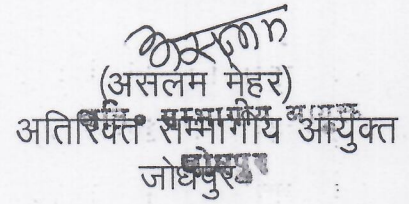 असलम
(असलम मेहर)
अतिरिक्त सम्भागीय आयुक्त
जोधपुर